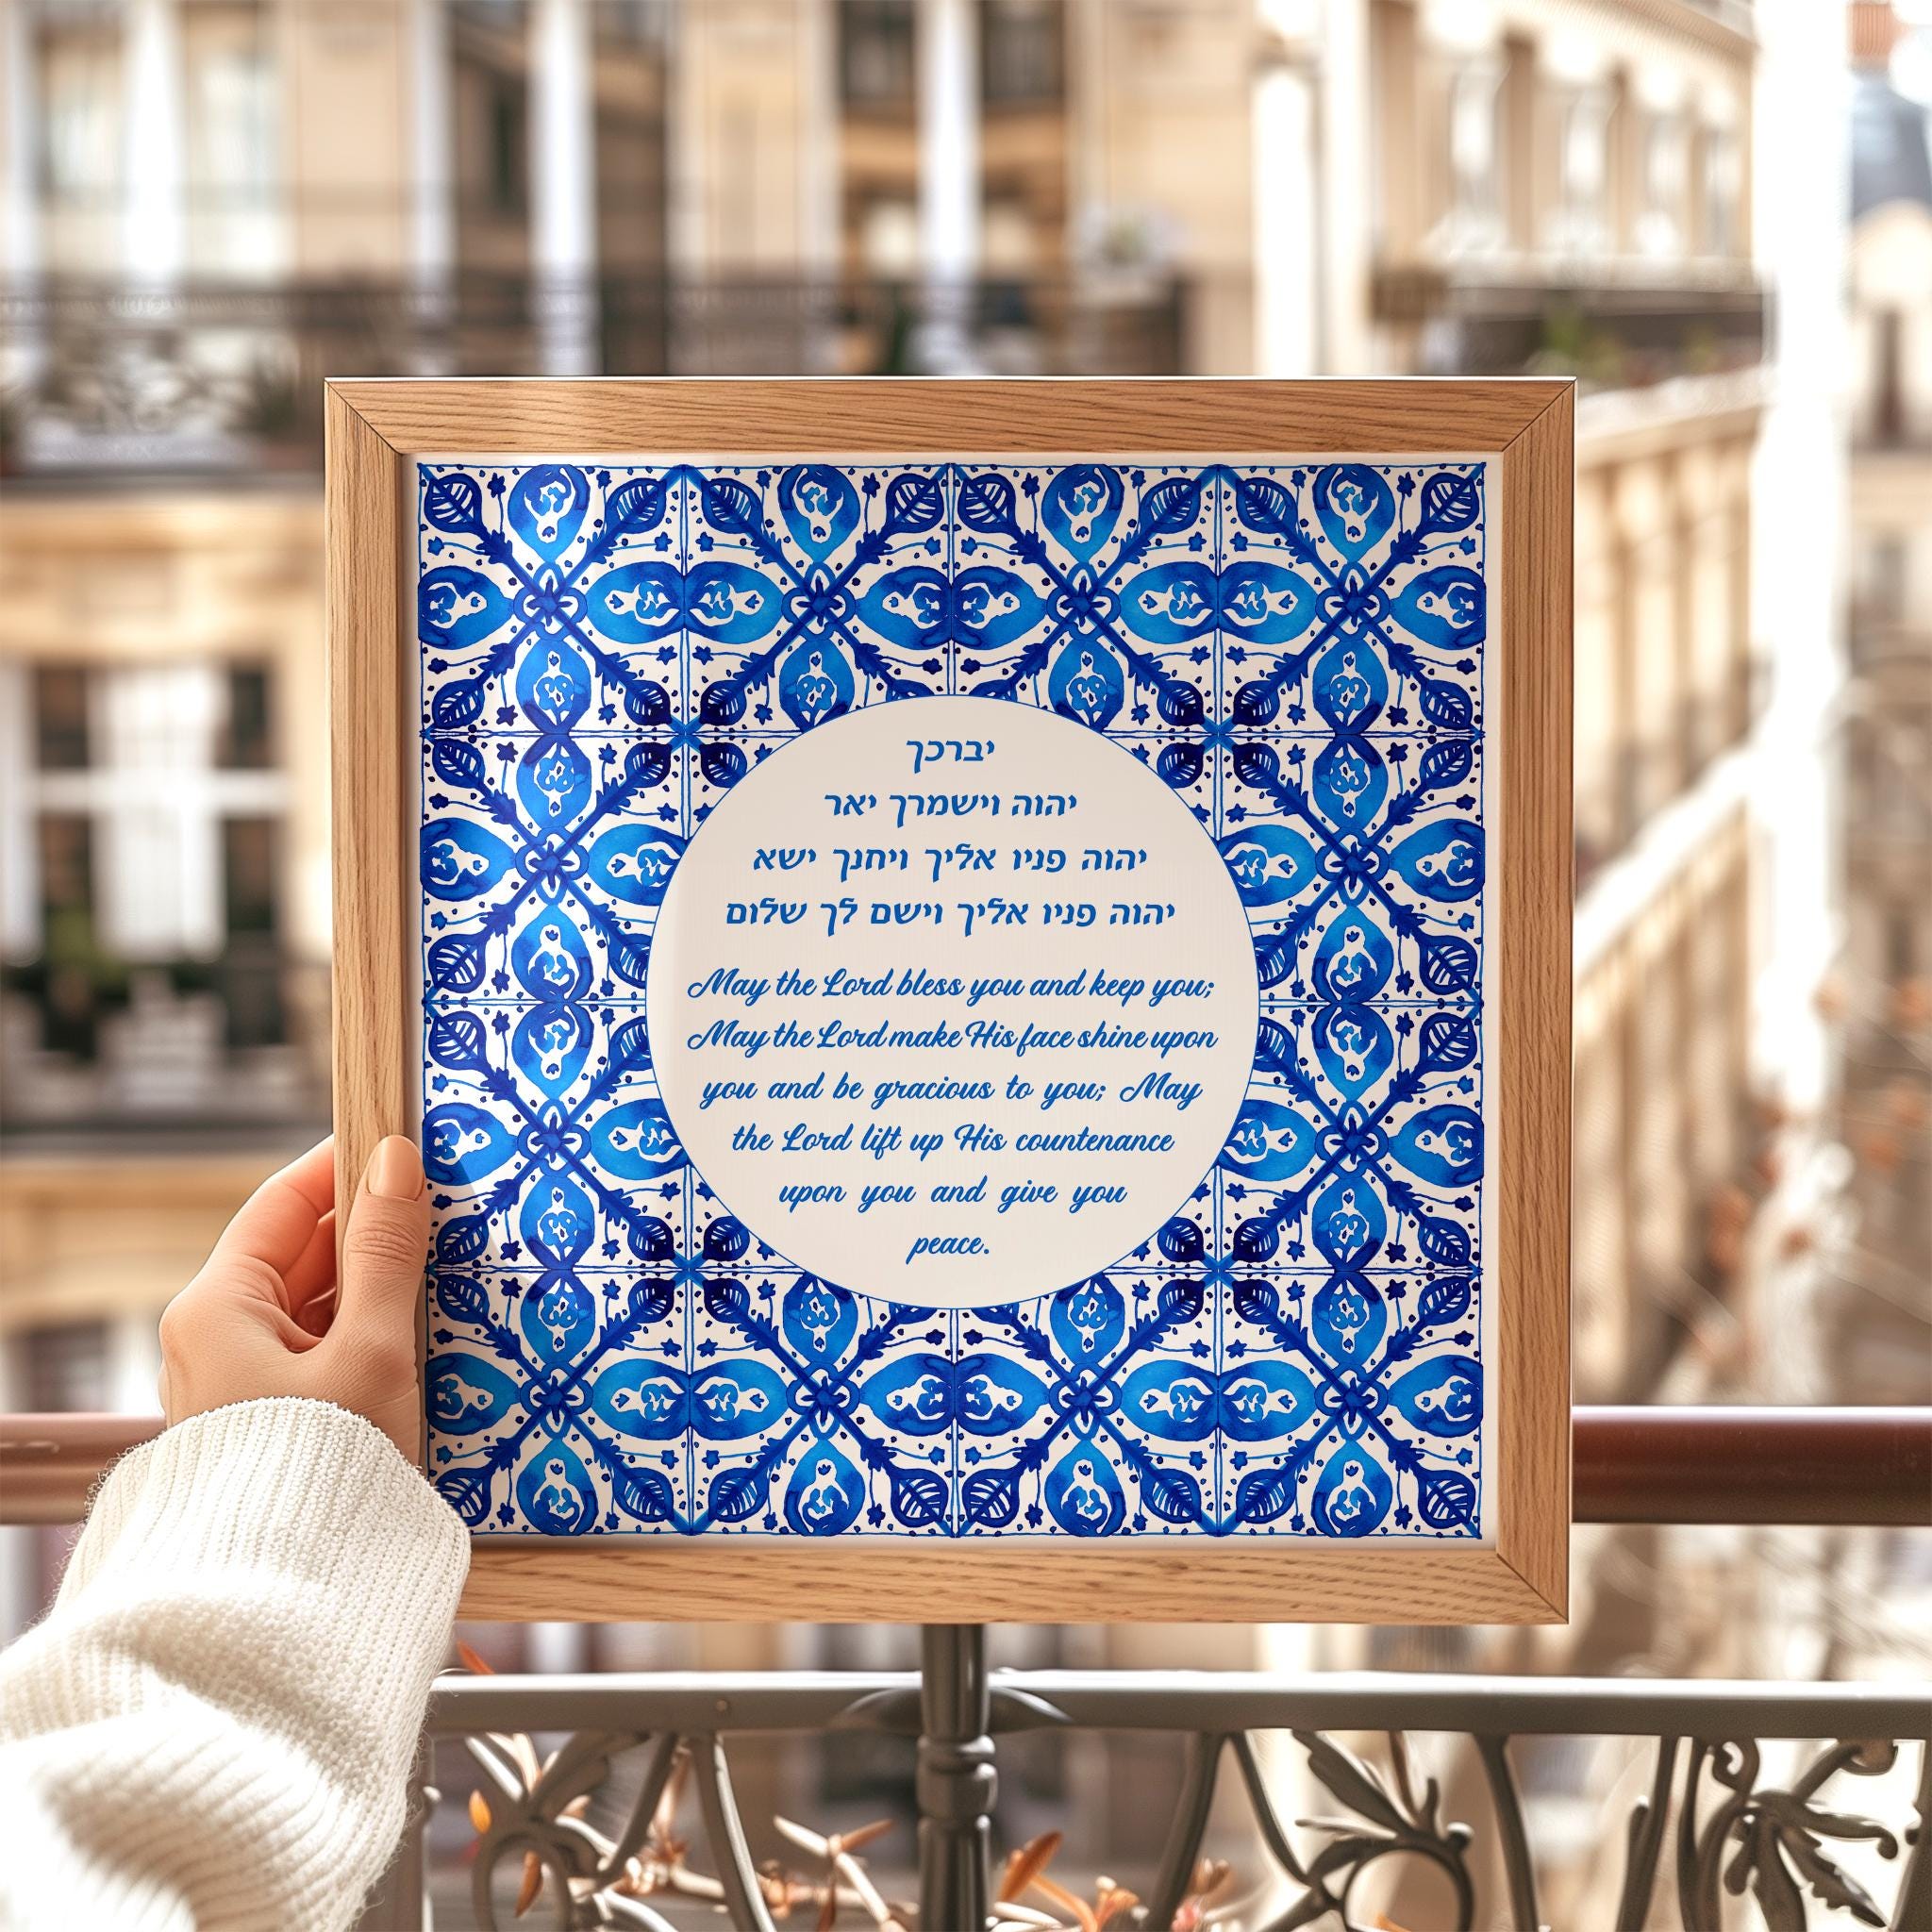 יברכך
יהוה וישמרך יאר
יהוה פניו אליך ויחנך ישא
יהוה פניו אליך וישם לך שלום
May the Lord bless you and keep you;
May the Lord make His face shine upon
you and be gracious to you; May
the Lord lift up His countenance
upon you and give you
peace.